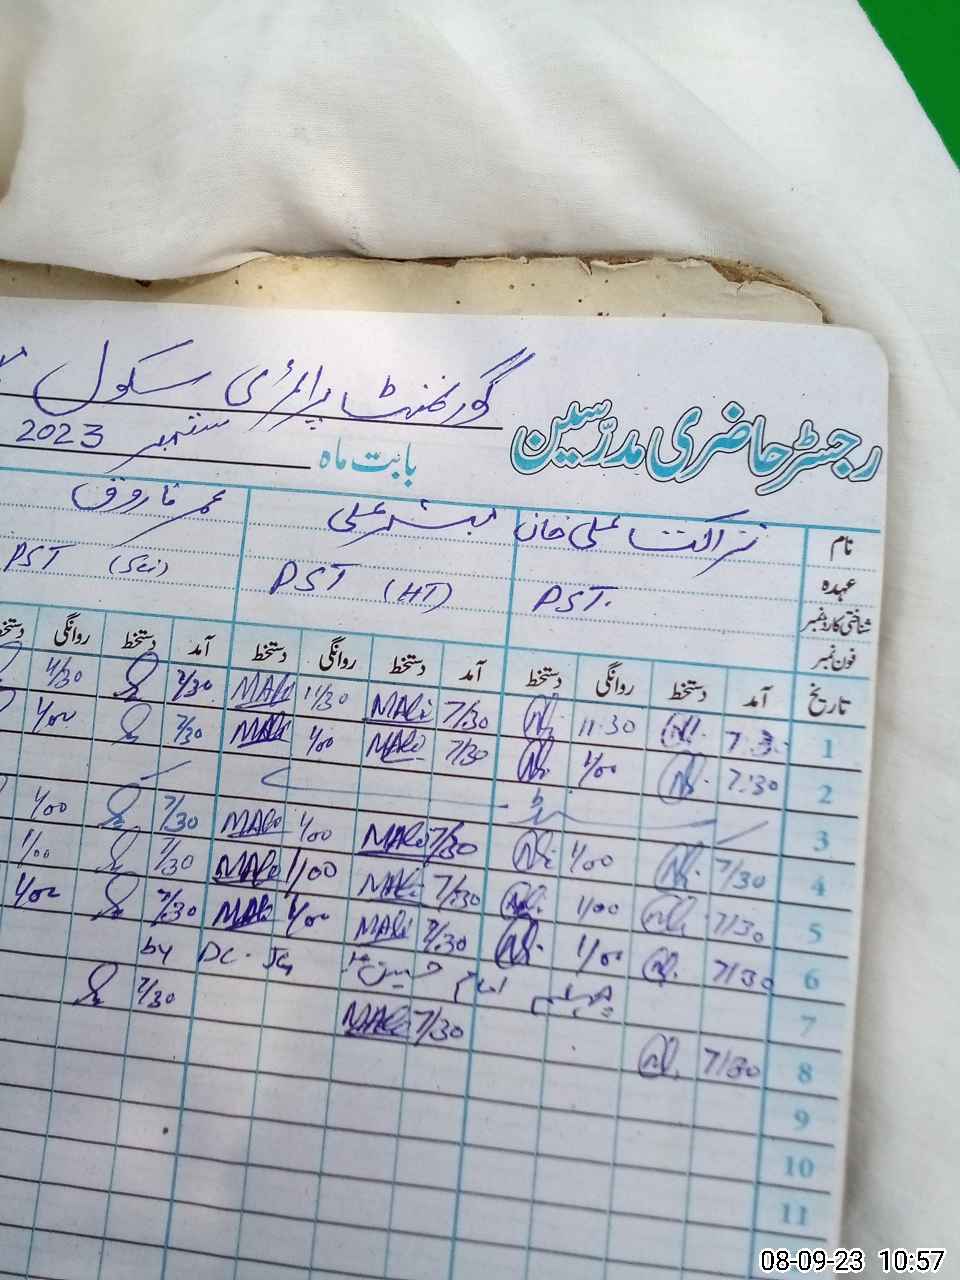 گورنمنٹ پرائمری سکول
رجسٹر حاضری مدرسین
بابت ماہ ستمبر 2023
نام نزاکت علی خان مبشر علی عمر فاروق
عہدہ PST. PST (HT) PST (Sci)
شناختی کارڈ نمبر
فون نمبر
تاریخ آمد دستخط روانگی دستخط آمد دستخط روانگی دستخط آمد دستخط روانگی
1 7:30 11:30 7/30 MAli 11/30 MAli 7/30
2 7:30 1/00 7/30 MAli 1/00 MAli 7/30 1/00
3
4 7/30 1/00 7/30 MAli 1/00 MAli 7/30 1/00
5 7/30 1/00 7/30 MAli 1/00 MAli 7/30 1/00
6 7/30 1/00 7/30 MAli 1/00 MAli 7/30 1/00
7 چہلم امام حسین by DC.
8 7/30 7/30 MAli 7/30
9
10
11
08-09-23 10:57